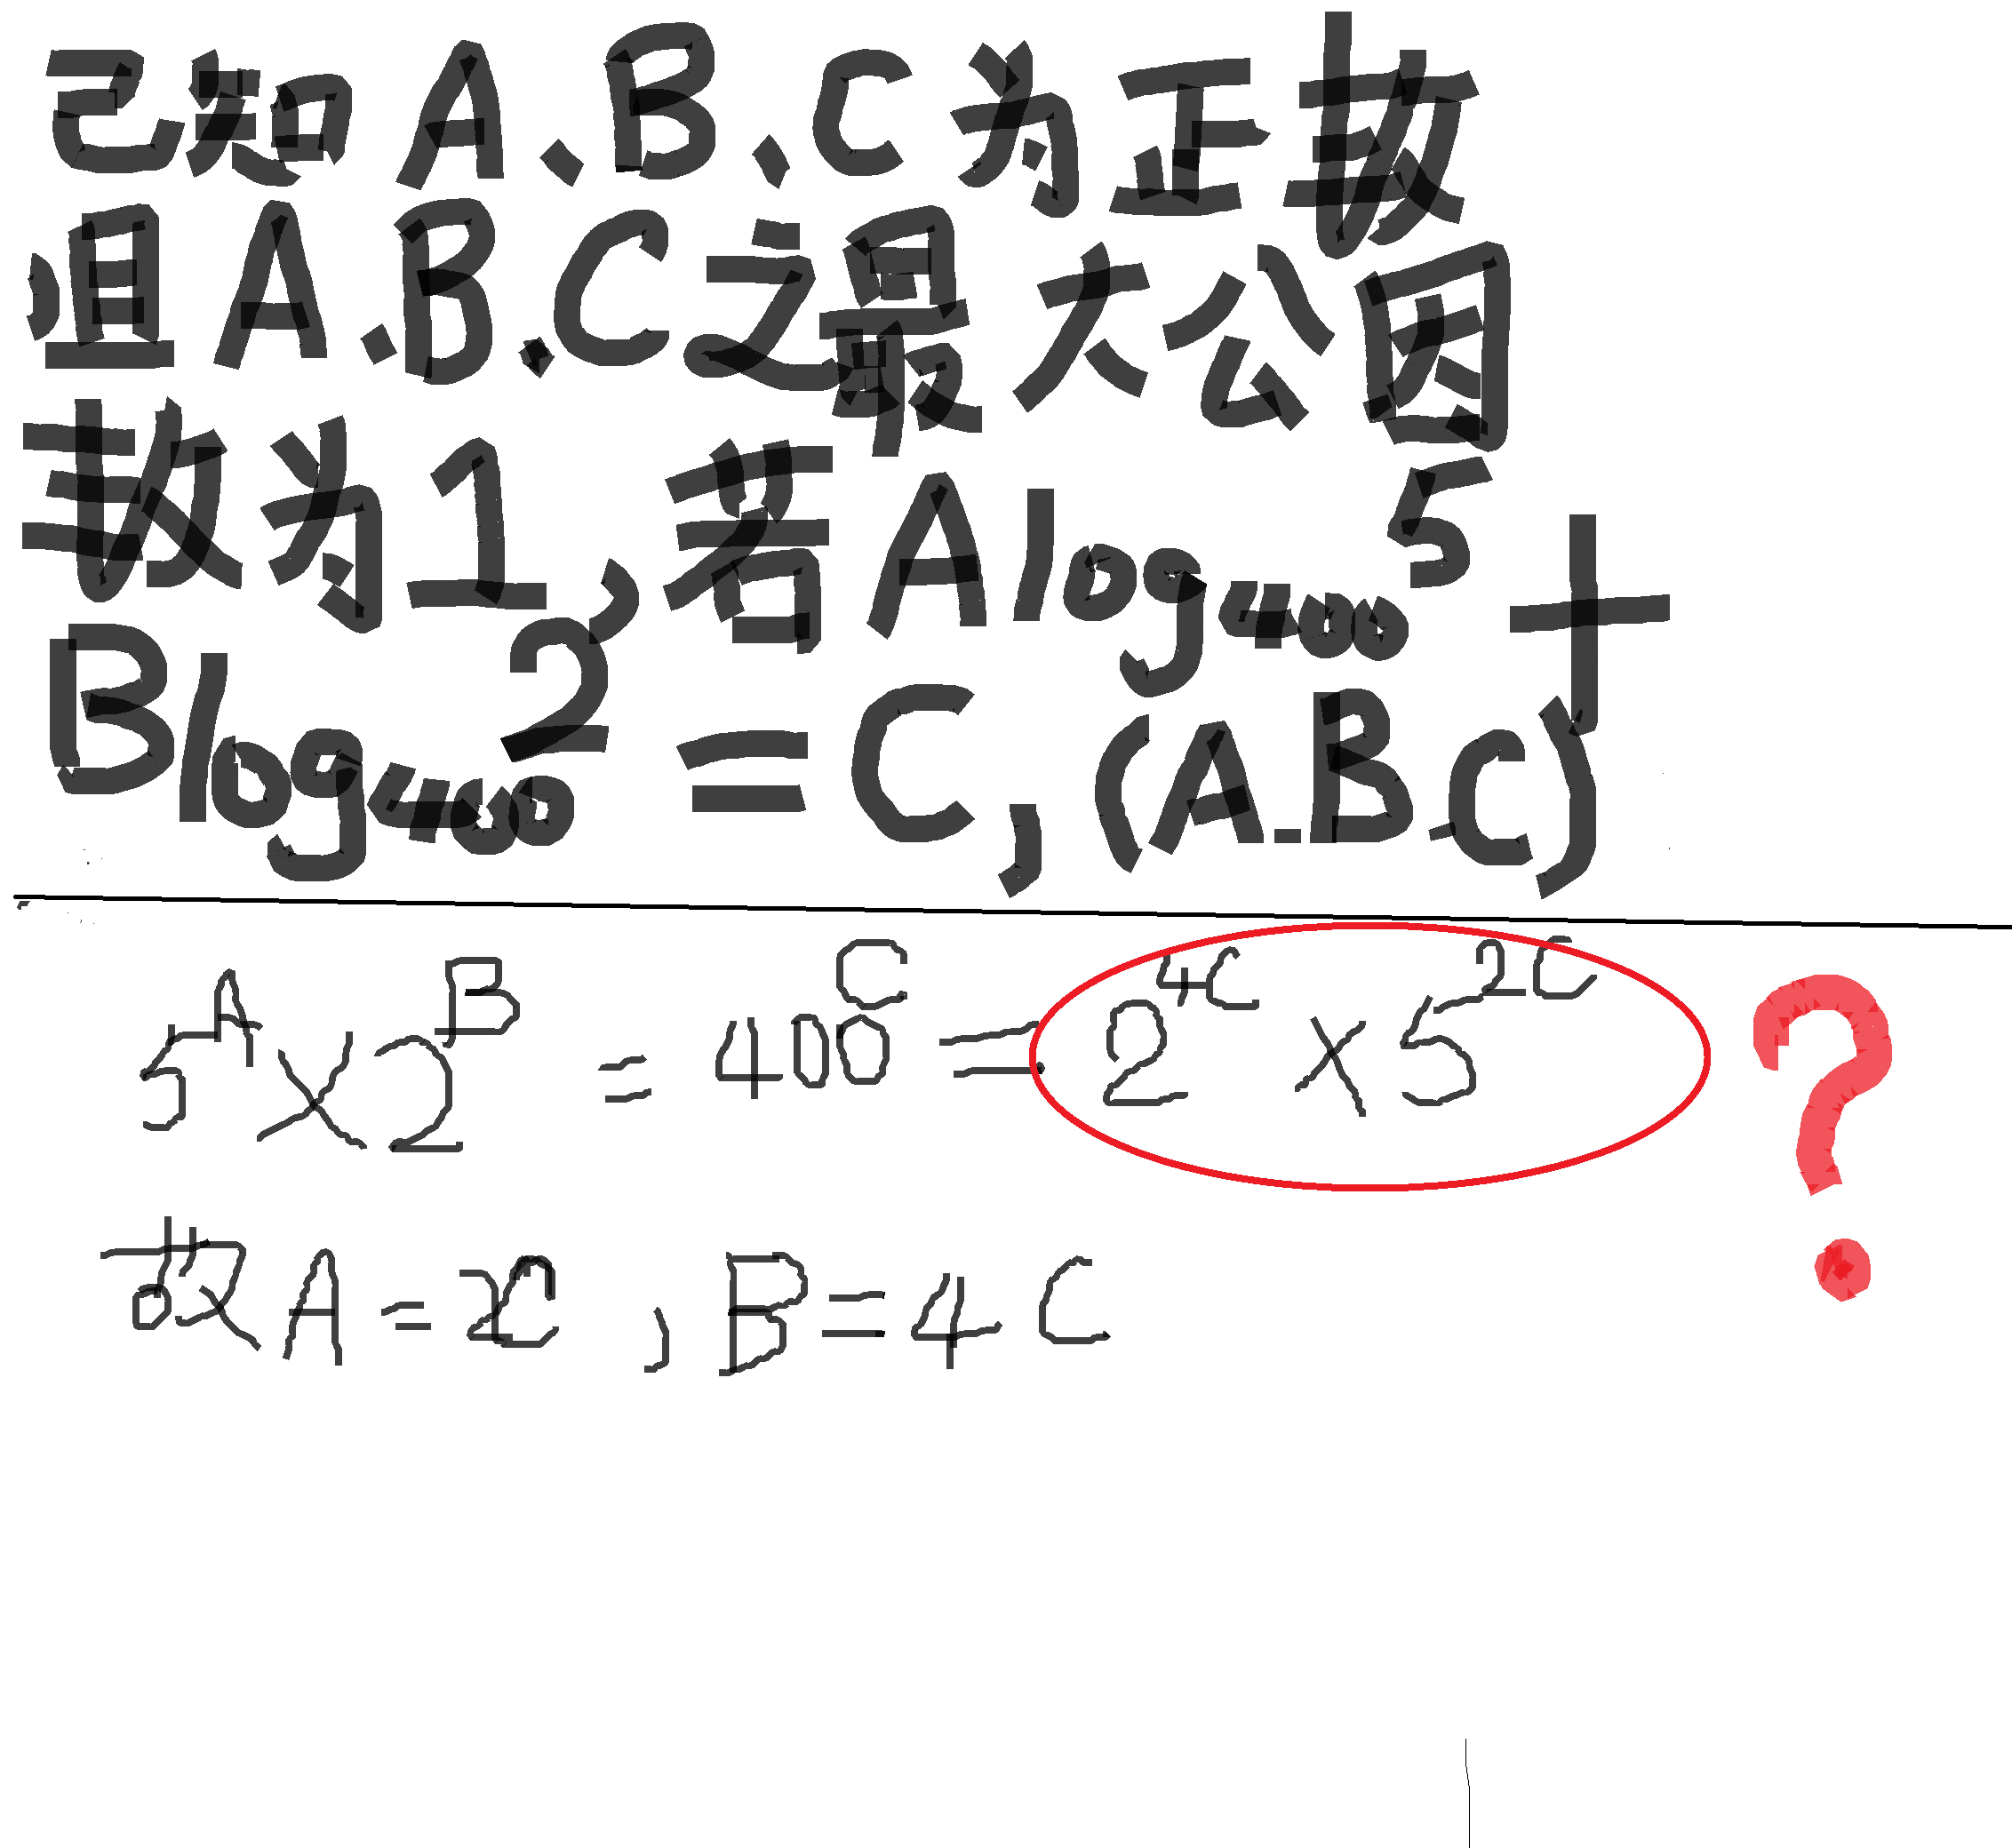 已知A、B、C為正整數
且A、B、C之最大公因
數為1,若Alog₄₀₀5+
Blog₄₀₀2=C,(A.B.C)
5ᴬ×2ᴮ=400ꟲ=2⁴ꟲ×5²ꟲ ?
故A=2C,B=4C